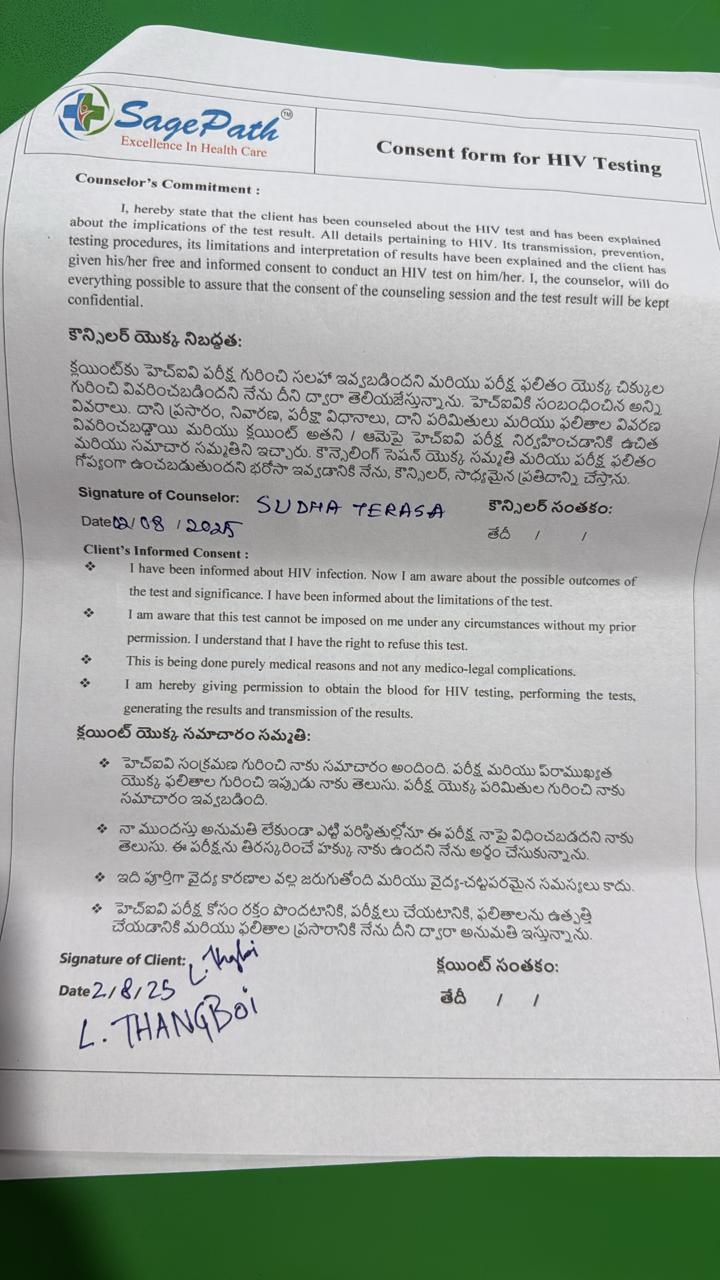 SagePath TM
Excellence In Health Care
Consent form for HIV Testing
Counselor's Commitment :
I, hereby state that the client has been counseled about the HIV test and has been explained
about the implications of the test result. All details pertaining to HIV. Its transmission, prevention,
testing procedures, its limitations and interpretation of results have been explained and the client has
given his/her free and informed consent to conduct an HIV test on him/her. I, the counselor, will do
everything possible to assure that the consent of the counseling session and the test result will be kept
confidential.
కౌన్సిలర్ యొక్క నిబద్ధత:
క్లయింట్‌కు హెచ్ఐవి పరీక్ష గురించి సలహా ఇవ్వబడిందని మరియు పరీక్ష ఫలితం యొక్క చిక్కుల
గురించి వివరించబడిందని నేను దీని ద్వారా తెలియజేస్తున్నాను. హెచ్ఐవికి సంబంధించిన అన్ని
వివరాలు. దాని ప్రసారం, నివారణ, పరీక్షా విధానాలు, దాని పరిమితులు మరియు ఫలితాల వివరణ
వివరించబడ్డాయి మరియు క్లయింట్ అతని / ఆమెపై హెచ్ఐవి పరీక్ష నిర్వహించడానికి ఉచిత
మరియు సమాచార సమ్మతిని ఇచ్చారు. కౌన్సెలింగ్ సెషన్ యొక్క సమ్మతి మరియు పరీక్ష ఫలితం
గోప్యంగా ఉంచబడుతుందని భరోసా ఇవ్వడానికి నేను, కౌన్సిలర్, సాధ్యమైన ప్రతిదాన్ని చేస్తాను.
Signature of Counselor: SUDHA TERASA కౌన్సిలర్ సంతకం:
Date 02/08/2025 తేదీ / /
Client's Informed Consent :
❖ I have been informed about HIV infection. Now I am aware about the possible outcomes of
the test and significance. I have been informed about the limitations of the test.
❖ I am aware that this test cannot be imposed on me under any circumstances without my prior
permission. I understand that I have the right to refuse this test.
❖ This is being done purely medical reasons and not any medico-legal complications.
❖ I am hereby giving permission to obtain the blood for HIV testing, performing the tests,
generating the results and transmission of the results.
క్లయింట్ యొక్క సమాచారం సమ్మతి:
❖ హెచ్ఐవి సంక్రమణ గురించి నాకు సమాచారం అందింది. పరీక్ష మరియు ప్రాముఖ్యత
యొక్క ఫలితాల గురించి ఇప్పుడు నాకు తెలుసు. పరీక్ష యొక్క పరిమితుల గురించి నాకు
సమాచారం ఇవ్వబడింది.
❖ నా ముందస్తు అనుమతి లేకుండా ఎట్టి పరిస్థితుల్లోనూ ఈ పరీక్ష నాపై విధించబడదని నాకు
తెలుసు. ఈ పరీక్షను తిరస్కరించే హక్కు నాకు ఉందని నేను అర్థం చేసుకున్నాను.
❖ ఇది పూర్తిగా వైద్య కారణాల వల్ల జరుగుతోంది మరియు వైద్య-చట్టపరమైన సమస్యలు కాదు.
❖ హెచ్ఐవి పరీక్ష కోసం రక్తం పొందటానికి, పరీక్షలు చేయటానికి, ఫలితాలను ఉత్పత్తి
చేయడానికి మరియు ఫలితాల ప్రసారానికి నేను దీని ద్వారా అనుమతి ఇస్తున్నాను.
Signature of Client: L. Thgboi క్లయింట్ సంతకం:
Date 2/8/25 తేదీ / /
L. THANGBOI